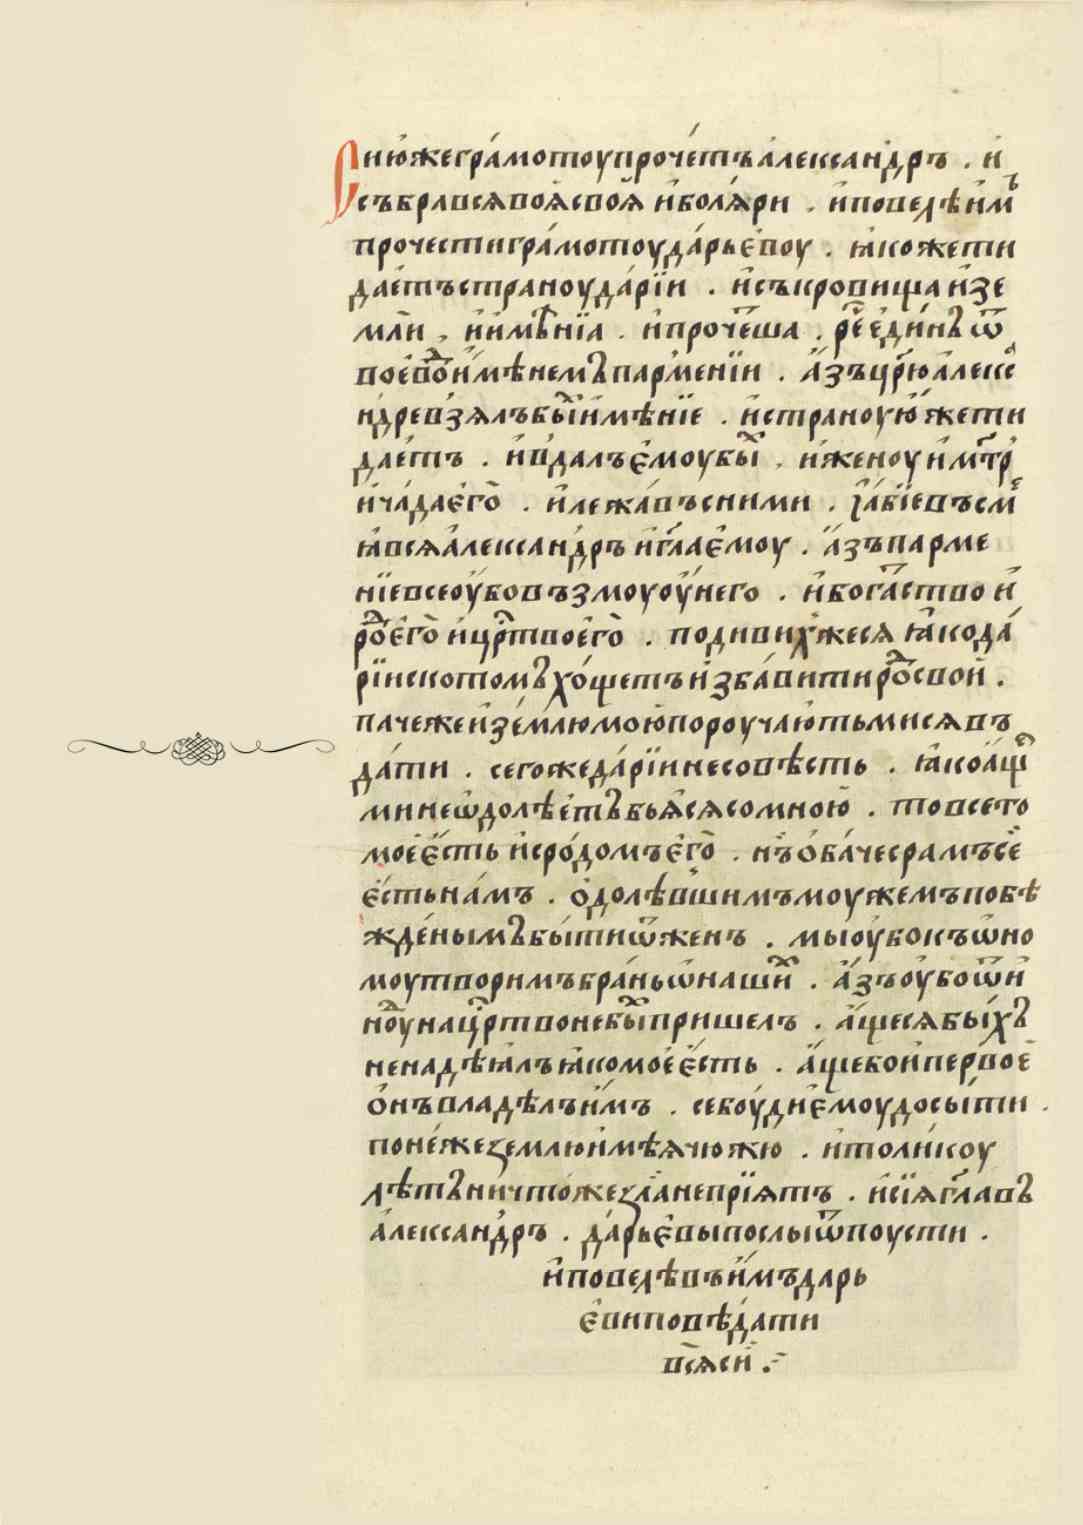 Сию́жегра́мотоупроче́тъа́леѯандръ . и҆
събравсявоѧ̀своѧ̀ и҆боля́ри . и҆поведѣи҆мъ
прочестигра́мотоуда́рьевоу . ꙗ҆кожети
дае́тъстраноуда́рїи . и҆съкровищаи҆зе
мли , и҆имѣ́нїа . и҆проче́ша . рѐ е҆ди́нъ ѿ
воево́дъи҆мѣнемъпармéнїи . а҆́зъцр҃юа҆леѯ
ндревзялъбы́и҆мѣнїе . и҆страноую҆́жети
дае́тъ . и҆вдалъе҆моубы̀ . и҆женоу и҆мт҃р
и҆ча́дае҆го̀ . и҆лежа́въсними . ꙗ҆бїевъсмі
ꙗ҆всяа҆леѯандръ и҆гл҃ае҆моу . а҆́зъпарме
нїевсеоу҆́бовъзмоуоу҆́него . и҆бога́тство и҆
ро́де҆го̀ и҆црт҃вое҆го̀ . подивихжеся ꙗ҆кода́
рїискотомъхо́щетъи҆зба́витиро́дсвой .
пачежеи҆зе́млюмоюпороучаютьмисявъ
да́ти . сегожеда́рїинесовѣсть . ꙗ҆коа҆́ще
минеѡ҆долѣе́тъбьяся́сомною . товсето
мое҆е҆́сть и҆сро́домъе҆го̀ . нъо҆ба́чесрамъсе
е҆́стьна́мъ . ѻ҆долѣвшимъмоужемъпобѣ
жде́нымъбы́тиѿженъ . мыоу҆́бокъѡ҆но
моутворимъбра́ньѡ҆наши́х . а҆́зъоу҆́боѿи҆
ноу́дунацр҃твонебы́хпришелъ . а҆́щесябы́хъ
ненадѣꙗ҆лъꙗ҆комое҆е҆́сть . а҆́щебои҆первое
ѻ҆нъвладѣлъи҆мъ . себоу́дие҆моудосы́ти .
поне́жеземлюи҆мѣячюжю . и҆толи́коу
лѣтъничто́жезла́непрїятъ . и҆сїягл҃авъ
а҆леѯандръ . да́рьевыпослыѿпоусти .
и҆поведѣвъи҆мъдарь
е҆виповѣ́дати
всясїѝ .